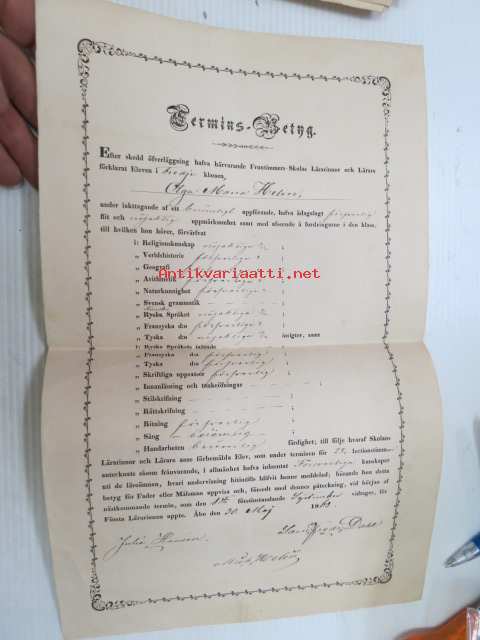 Termins-Betyg.
Efter skedd öfverläggning hafva härvarande Fruntimmers-Skolas Lärarinnor och Lärare
förklarat Eleven i tredje klassen,
Olga Maria Helin,
under iakttagande af ett berömligt uppförande, hafva ådagalagt försvarlig
flit och nöjaktig uppmärksamhet samt med afseende å fordringarne i den klass,
till hvilken hon hörer, förvärfvat
i: Religionskunskap nöjaktiga
„ Verldshistorie försvarliga
„ Geografi
Antikvariaatti.net
„ Arithmetik försvarliga
„ Naturkunnighet försvarliga
„ Svensk grammatik
„ Ryska Språket nöjaktiga
„ Fransyska d:o försvarliga
„ Tyska d:o nöjaktiga insigter, samt
i: Ryska Språkets talande
„ Fransyska d:o försvarlig
„ Tyska d:o försvarlig
„ Skriftliga uppsatser försvarlig
„ Innanläsning och tankeöfningar
„ Stilskrifning
„ Rättskrifning
„ Ritning försvarlig
„ Sång berömlig
„ Handarbeten berömlig färdighet; till följe hvaraf Skolans
Lärarinnor och Lärare anse förbemälda Elev, som under terminen för 22 lectionstimmar
antecknats såsom frånvarande, i allmänhet hafva inhemtat Försvarliga kunskaper
uti de läroämnen, hvari undervisning hittills blifvit henne meddelad; börande hon detta
betyg för Fader eller Målsman uppvisa och, försedt med dennes påteckning, vid början af
nästkommande termin, som den 1 förestundande September vidtager, för
Första Lärarinnan uppte. Åbo den 30 Maj 1863
Julia Hansen.